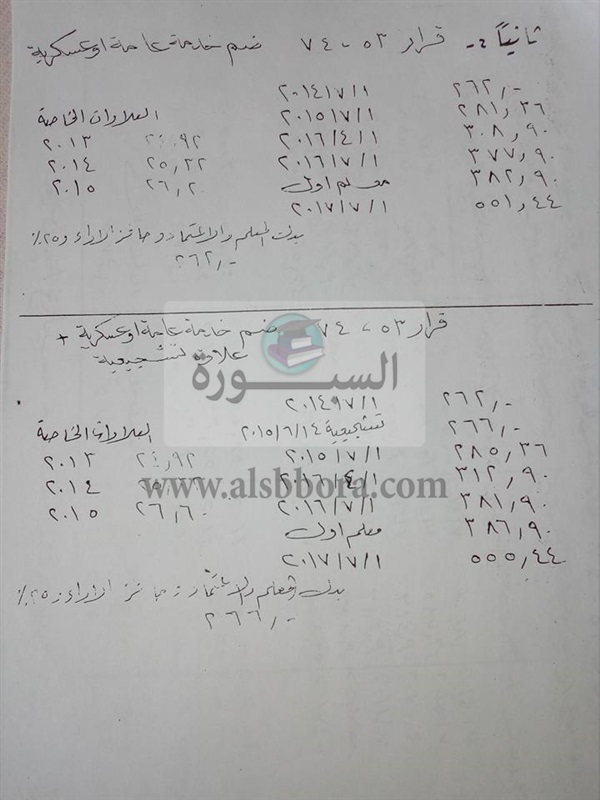 ثانياً :- قرار ٥٣ - ٧٤ ضم خدمة عامة او عسكرية
٢٦٢,- ٢٠١٤/٧/١
٢٨١,٣٦ ٢٠١٥/٧/١ العلاوات الخاصة
٣٠٨,٩٠ ٢٠١٦/٤/١ ٢٤,٩٢ ٢٠١٣
٣٧٧,٩٠ ٢٠١٦/٧/١ ٢٥,٢٢ ٢٠١٤
٣٨٢,٩٠ معلم اول ٢٦,٢ ٢٠١٥
٥٥١,٤٤ ٢٠١٧/٧/١
بدلات المعلم والاعتماد وحافز الاداء و٢٥٪
٢٦٢,-
قرار ٥٣ - ٧٤ ضم خدمة عامة او عسكرية +
علاوة تشجيعية
السبورة
٢٦٢,- ٢٠١٤/٧/١
٢٦٦,- تشجيعية ٢٠١٥/٦/١٤ العلاوات الخاصة
٢٨٥,٣٦ ٢٠١٥/٧/١ ٢٤,٩٢ ٢٠١٣
٣١٢,٩٠ ٢٠١٦/٤/١ ٢٠١٤
www.alsbbora.com
٣٨١,٩٠ ٢٠١٦/٧/١ ٢٦,٦٠ ٢٠١٥
٣٨٦,٩٠ معلم اول
٥٥٥,٤٤ ٢٠١٧/٧/١
بدل المعلم والاعتماد وحافز الاداء و٢٥٪
٢٦٦,-